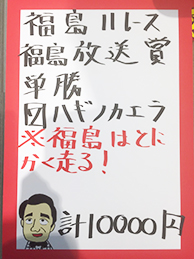 福島11レース
福島放送賞
単勝
図ハギノカエラ
※福島はとに
かく走る!
計10000円